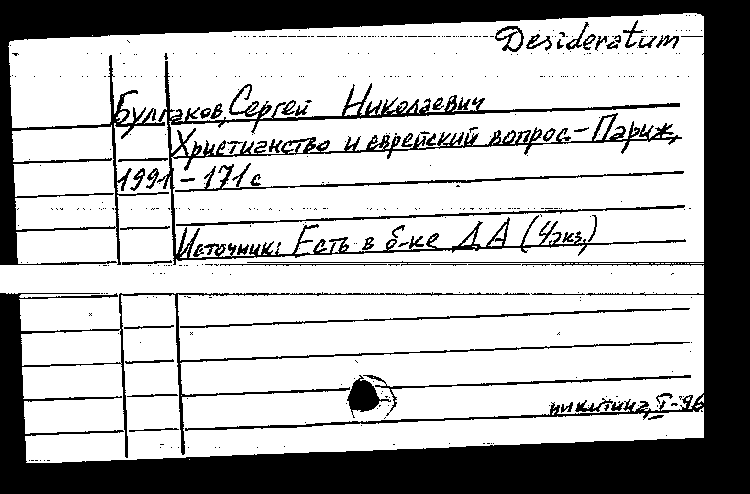 Desideratum
Булгаков, Сергей Николаевич
Христианство и еврейский вопрос.- Париж,
1991 - 171 с
Источник: Есть в б-ке ДА (4 экз.)
никитина, I-96